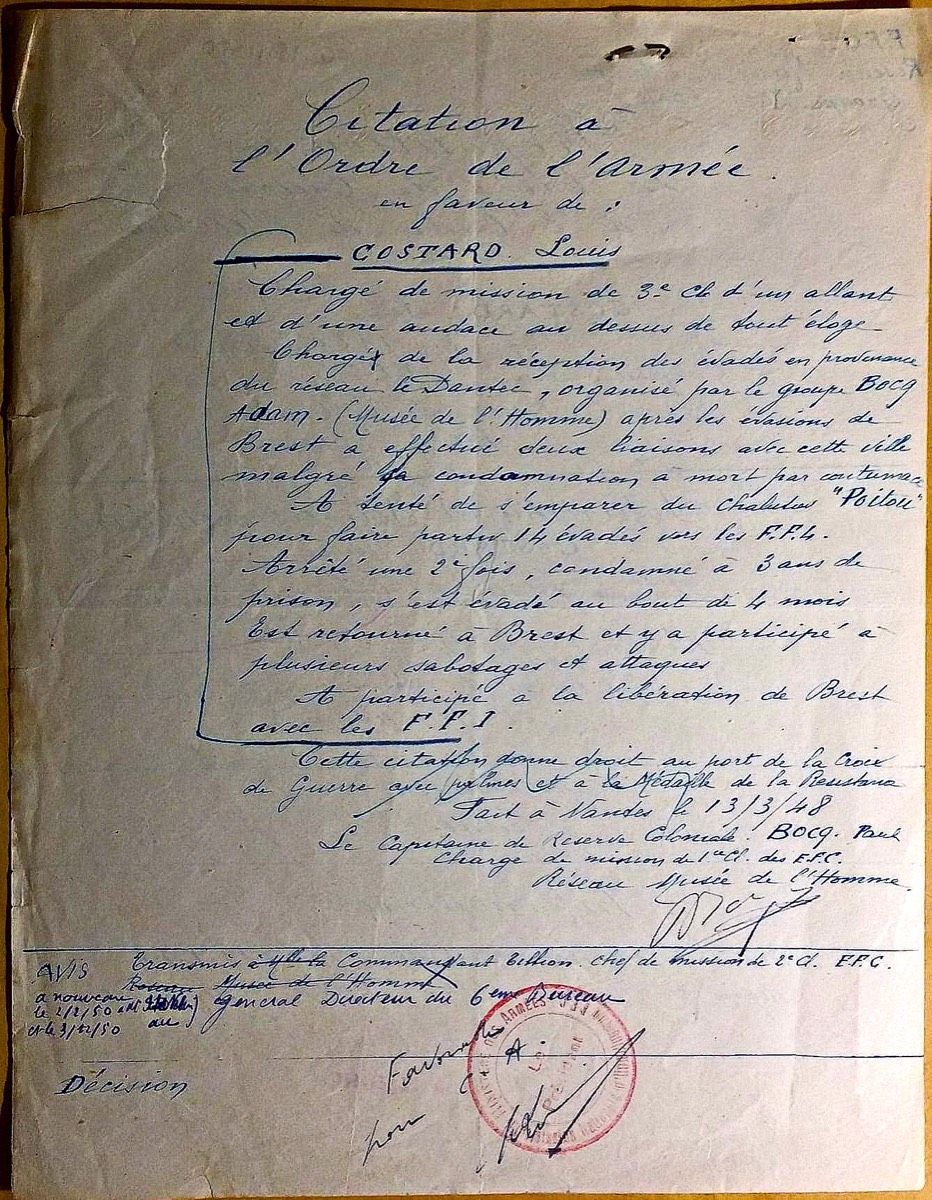 Citation à
l'Ordre de l'Armée.
en faveur de :
COSTARD. Louis
Chargé de mission de 3e Cl d'un allant
et d'une audace au dessus de tout éloge
Chargé de la réception des évadés en provenance
du réseau le Dantec, organisé par le groupe BOCQ
ADAM. (Musée de l'Homme) après les évasions de
Brest a effectué deux liaisons avec cette ville
malgré sa condamnation à mort par contumace
A tenté de s'emparer du chalutier "POITOU"
pour faire partir 14 évadés vers les F.F.L.
Arrêté une 2e fois, condamné à 3 ans de
prison, s'est évadé au bout de 4 mois
Est retourné à Brest et y a participé à
plusieurs sabotages et attaques
A participé a la libération de Brest
avec les F.F.I.
Cette citation donne droit au port de la Croix
de Guerre avec palmes et à la Médaille de la Resistance
Fait à Nantes le 13/3/48
Le Capitaine de Reserve Coloniale. BOCQ. Paul
Charge de mission de 1ere Cl. des F.F.C.
Réseau Musée de l'Homme.
AVIS Transmis à Mlle la Commandant Tillion. chef de mission de 2e Cl. F.F.C.
Reseau Musée de l'Homme
a nouveau
le 2/2/50
et le 3/12/50 au
General Directeur du 6eme Bureau
Favorable
A.
pour
Le
Président
Décision